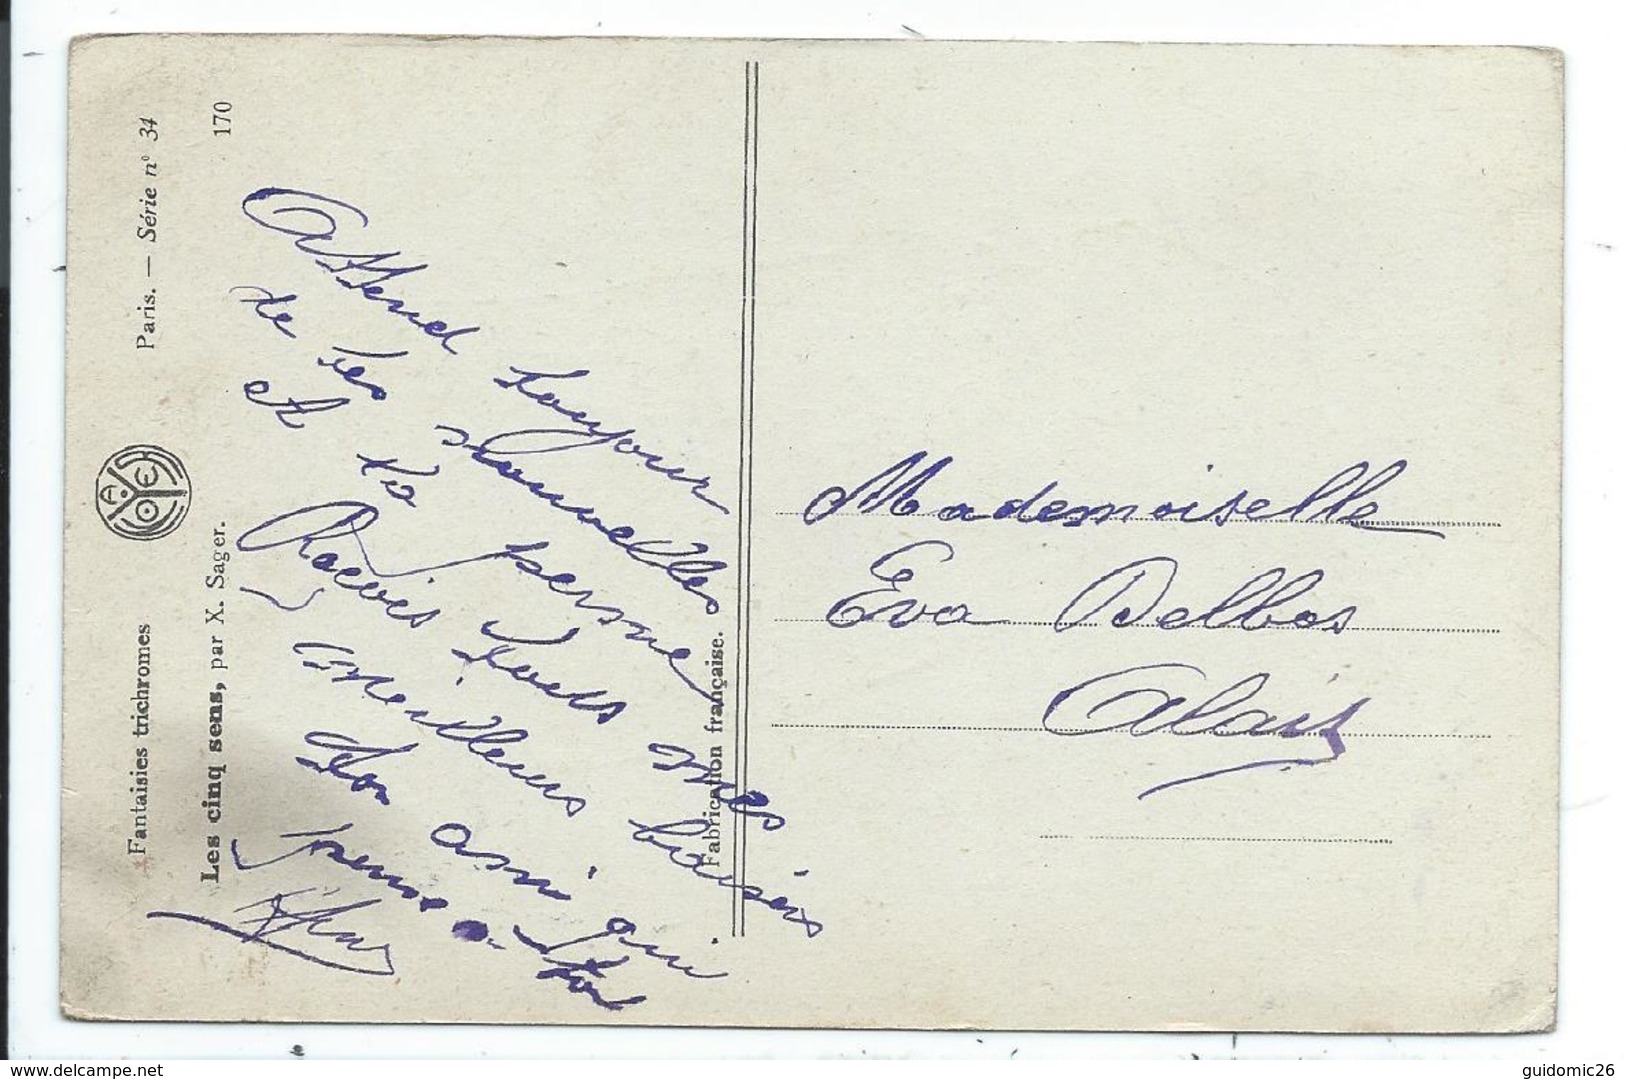 Fantaisies trichromes
Paris. — Série n° 34
Les cinq sens, par X. Sager.
170
Attend toujour
de tes nouvelles
et ta personne
Recois touts mes
meilleurs baisers
ton ami qui
pense a toi
Fabrication française.
Mademoiselle
Eva Delbos
Alais
www.delcampe.net
guidomic26